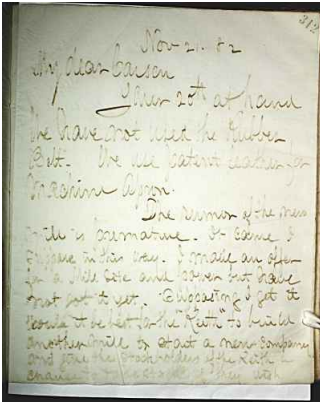 312
Nov 21. 82
My dear Carson
Your 20th at hand
We have not used the Rubber
Belt. We use patent leather for
Machine Apron.
The rumor of the new
Mill is premature. It came I
suppose in this way. I made an offer
for a Mill Site and power but have
not got it yet. Supposing I get it
would it be best for the "Keith" to build
another Mill or start a new company
and give the stockholders of the Keith a
chance to take stock if they wish